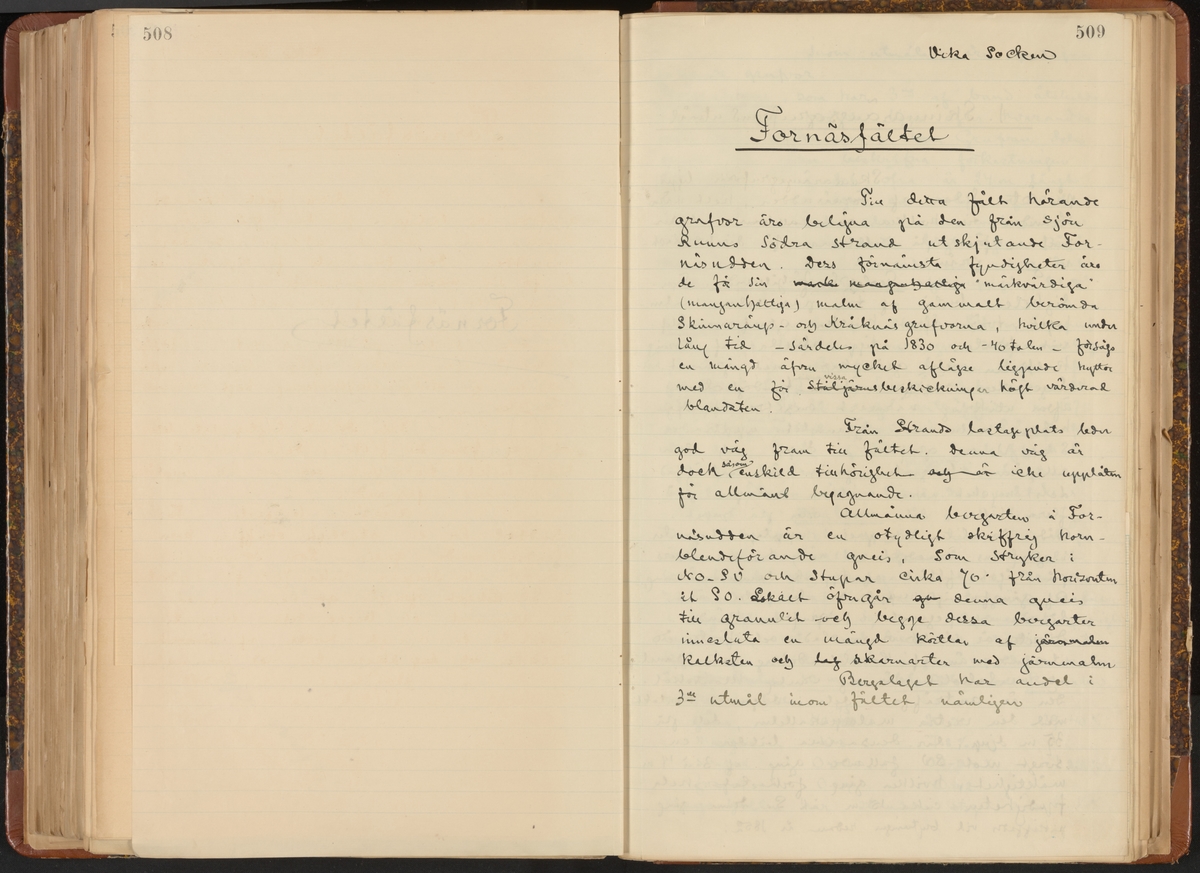 508
509
Vika Socken
Fornäsfältet
Till detta fält hörande
grufvor äro belägna på den från sjön
Runns Södra strand utskjutande For-
näsudden. Dess förnämsta fyndigheter äro
de för sin mark manganhaltiga "märkvärdiga"
(manganhaltiga) malm af gammalt berömda
Skinnarängs- och Kråknäsgrufvorna, hvilka under
lång tid - särdeles på 1830 och -40 talen - försågo
en mängd äfven mycket aflägse liggande hyttor
vissa
med en för Ståljärnsbeskickningar högt värderad
blandsten.
Från Strands lastageplats leder
god väg fram till fältet. Denna väg är
såsom
dock enskild tillhörighet och är icke upplåten
för allmänt begagnande.
Allmänna bergarten å For-
näsudden är en otydligt skiffrig horn-
blendeförande gneis, som stryker i
NO-SV och stupar cirka 70° från horisonten
åt SO. Lokalt öfvergår gn denna gneis
till granulit och begge dessa bergarter
innesluta en mängd körtlar af järnmalm
kalksten och lag skarnarter med järnmalm
Bergslaget har andel i
3ne utmål inom fältet nämligen